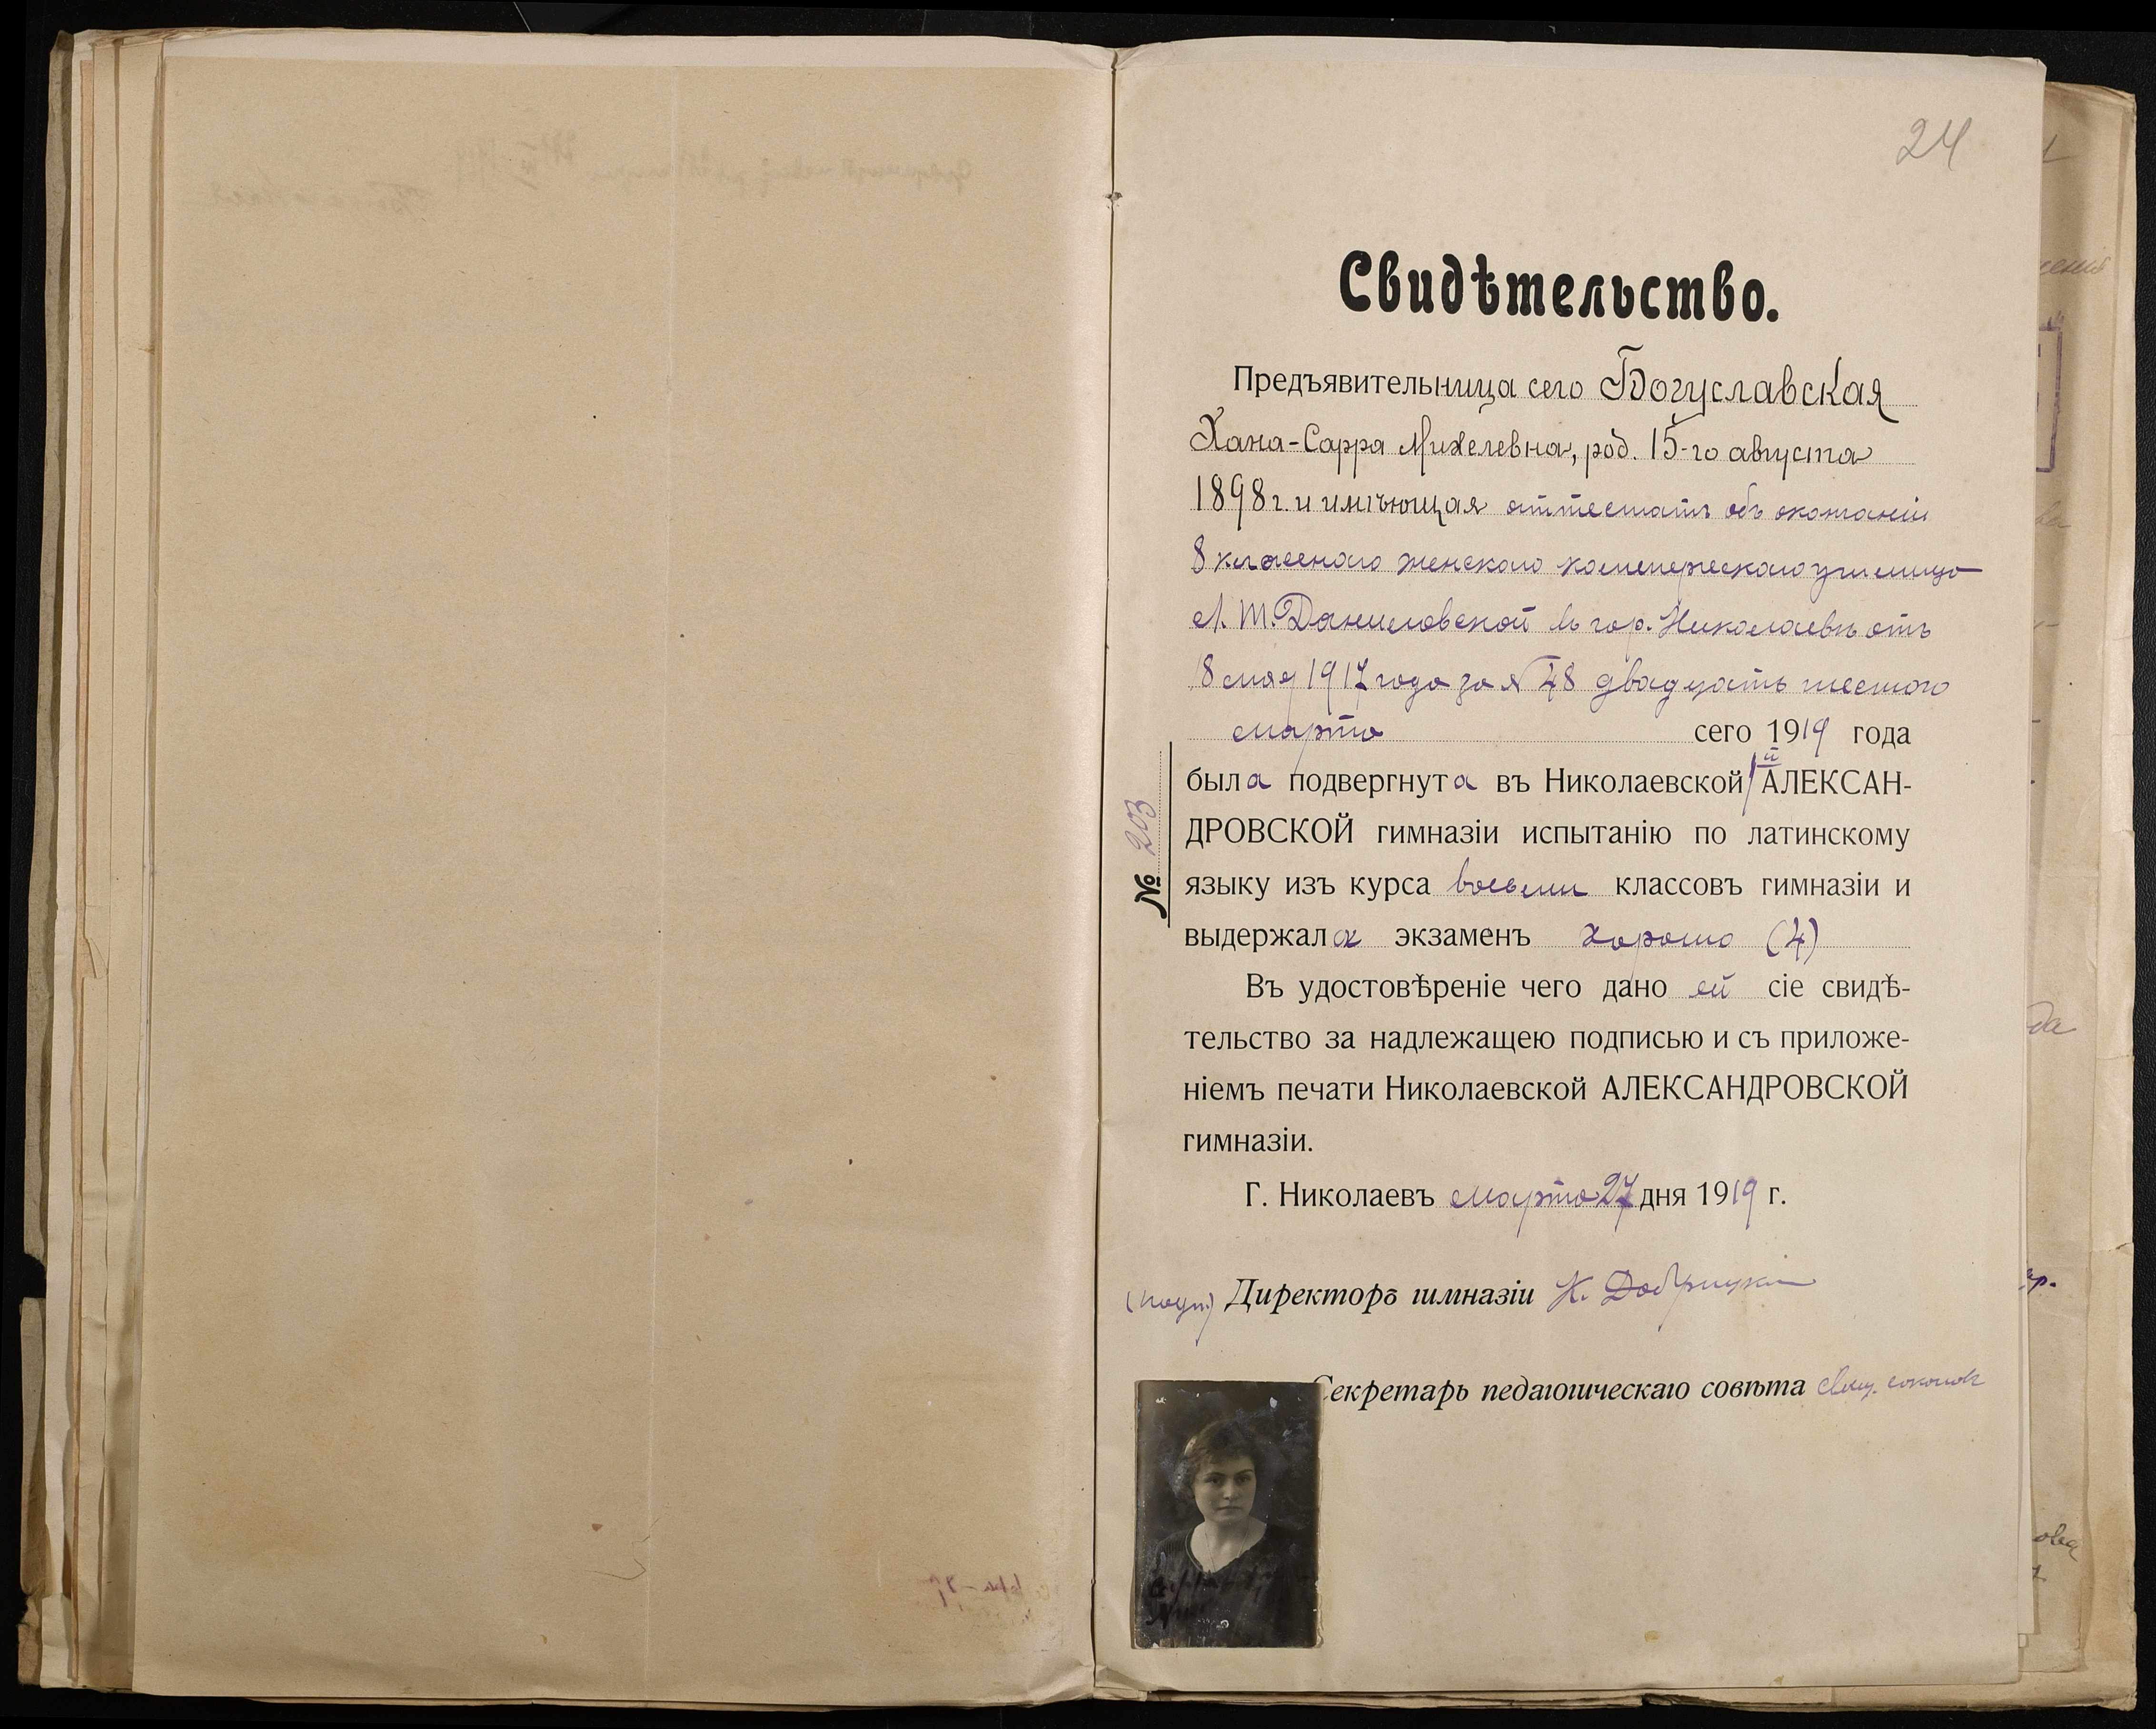 24
Свидѣтельство.
Предъявительница сего Богуславская
Хана-Сарра Михелевна, род. 15-го августа
1898 г. и имѣющая аттестатъ объ окончаніи
8 классного женского коммерческого училища
Л. М. Даниловской въ гор. Николаевѣ отъ
18 мая 1917 года за № 48 двадцать шестого
марта сего 1919 года
была подвергнута въ Николаевской 1й АЛЕКСАН-
ДРОВСКОЙ гимназіи испытанію по латинскому
языку изъ курса восьми классовъ гимназіи и
выдержала экзаменъ хорошо (4)
Въ удостовѣреніе чего дано ей сіе свидѣ-
тельство за надлежащею подписью и съ приложе-
ніемъ печати Николаевской АЛЕКСАНДРОВСКОЙ
гимназіи.
Г. Николаевъ марта 27 дня 1919 г.
(подп.) Директоръ гимназіи К. Добрицкій
Секретарь педагогическаго совѣта
№ 203